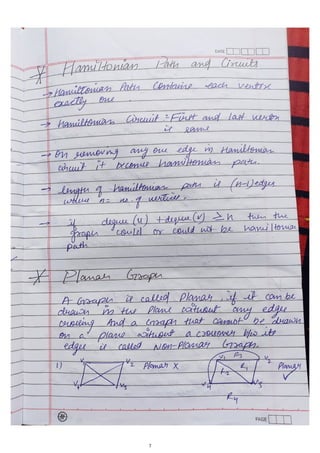 DATE
Hamiltonian Path and Circuits
→ Hamiltonian Path Contains each vertex
exactly one.
→ Hamiltonian Circuit : First and last vertex
is same
→ On removing any one edge in Hamiltonian
circuit it become hamiltonian path.
→ length of hamiltonian path is (n-1) edges
where n = no. of vertices.
→ if degree (u) + degree (v) ≥ n then the
graph could or could not be hamiltonian
path
Planar Graph
A Graph is called Planar, if it can be
drawn in the Plane without any edge
crossing And a Graph that cannot be drawn
on a plane without a crossover b/w its
edges is called Non-Planar Graph.
1) V₁ V₂ Planar X V₁ R₃ V₂ Planar ✓
R₂ R₁
V₄ V₃ V₄ V₃
R₄
PAGE
7